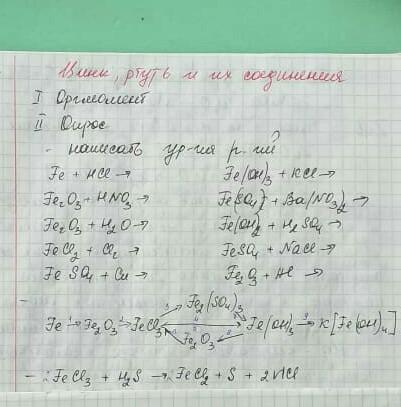 Цинк, ртуть и их соединения
I Оргмомент
II Опрос
- написать ур-ния р-ций
Fe + HCl → Fe(OH)3 + KCl →
Fe2O3 + HNO3 → Fe(SO4) + Ba(NO3)2 →
Fe2O3 + H2O → Fe(OH)2 + H2SO4 →
FeCl2 + Cl2 → FeSO4 + NaCl →
FeSO4 + Cu → Fe2O3 + Al →
Fe2(SO4)3
- Fe → Fe2O3 → FeCl3 → Fe(OH)3 → K[Fe(OH)4]
Fe2O3
- FeCl3 + H2S → FeCl2 + S + 2HCl